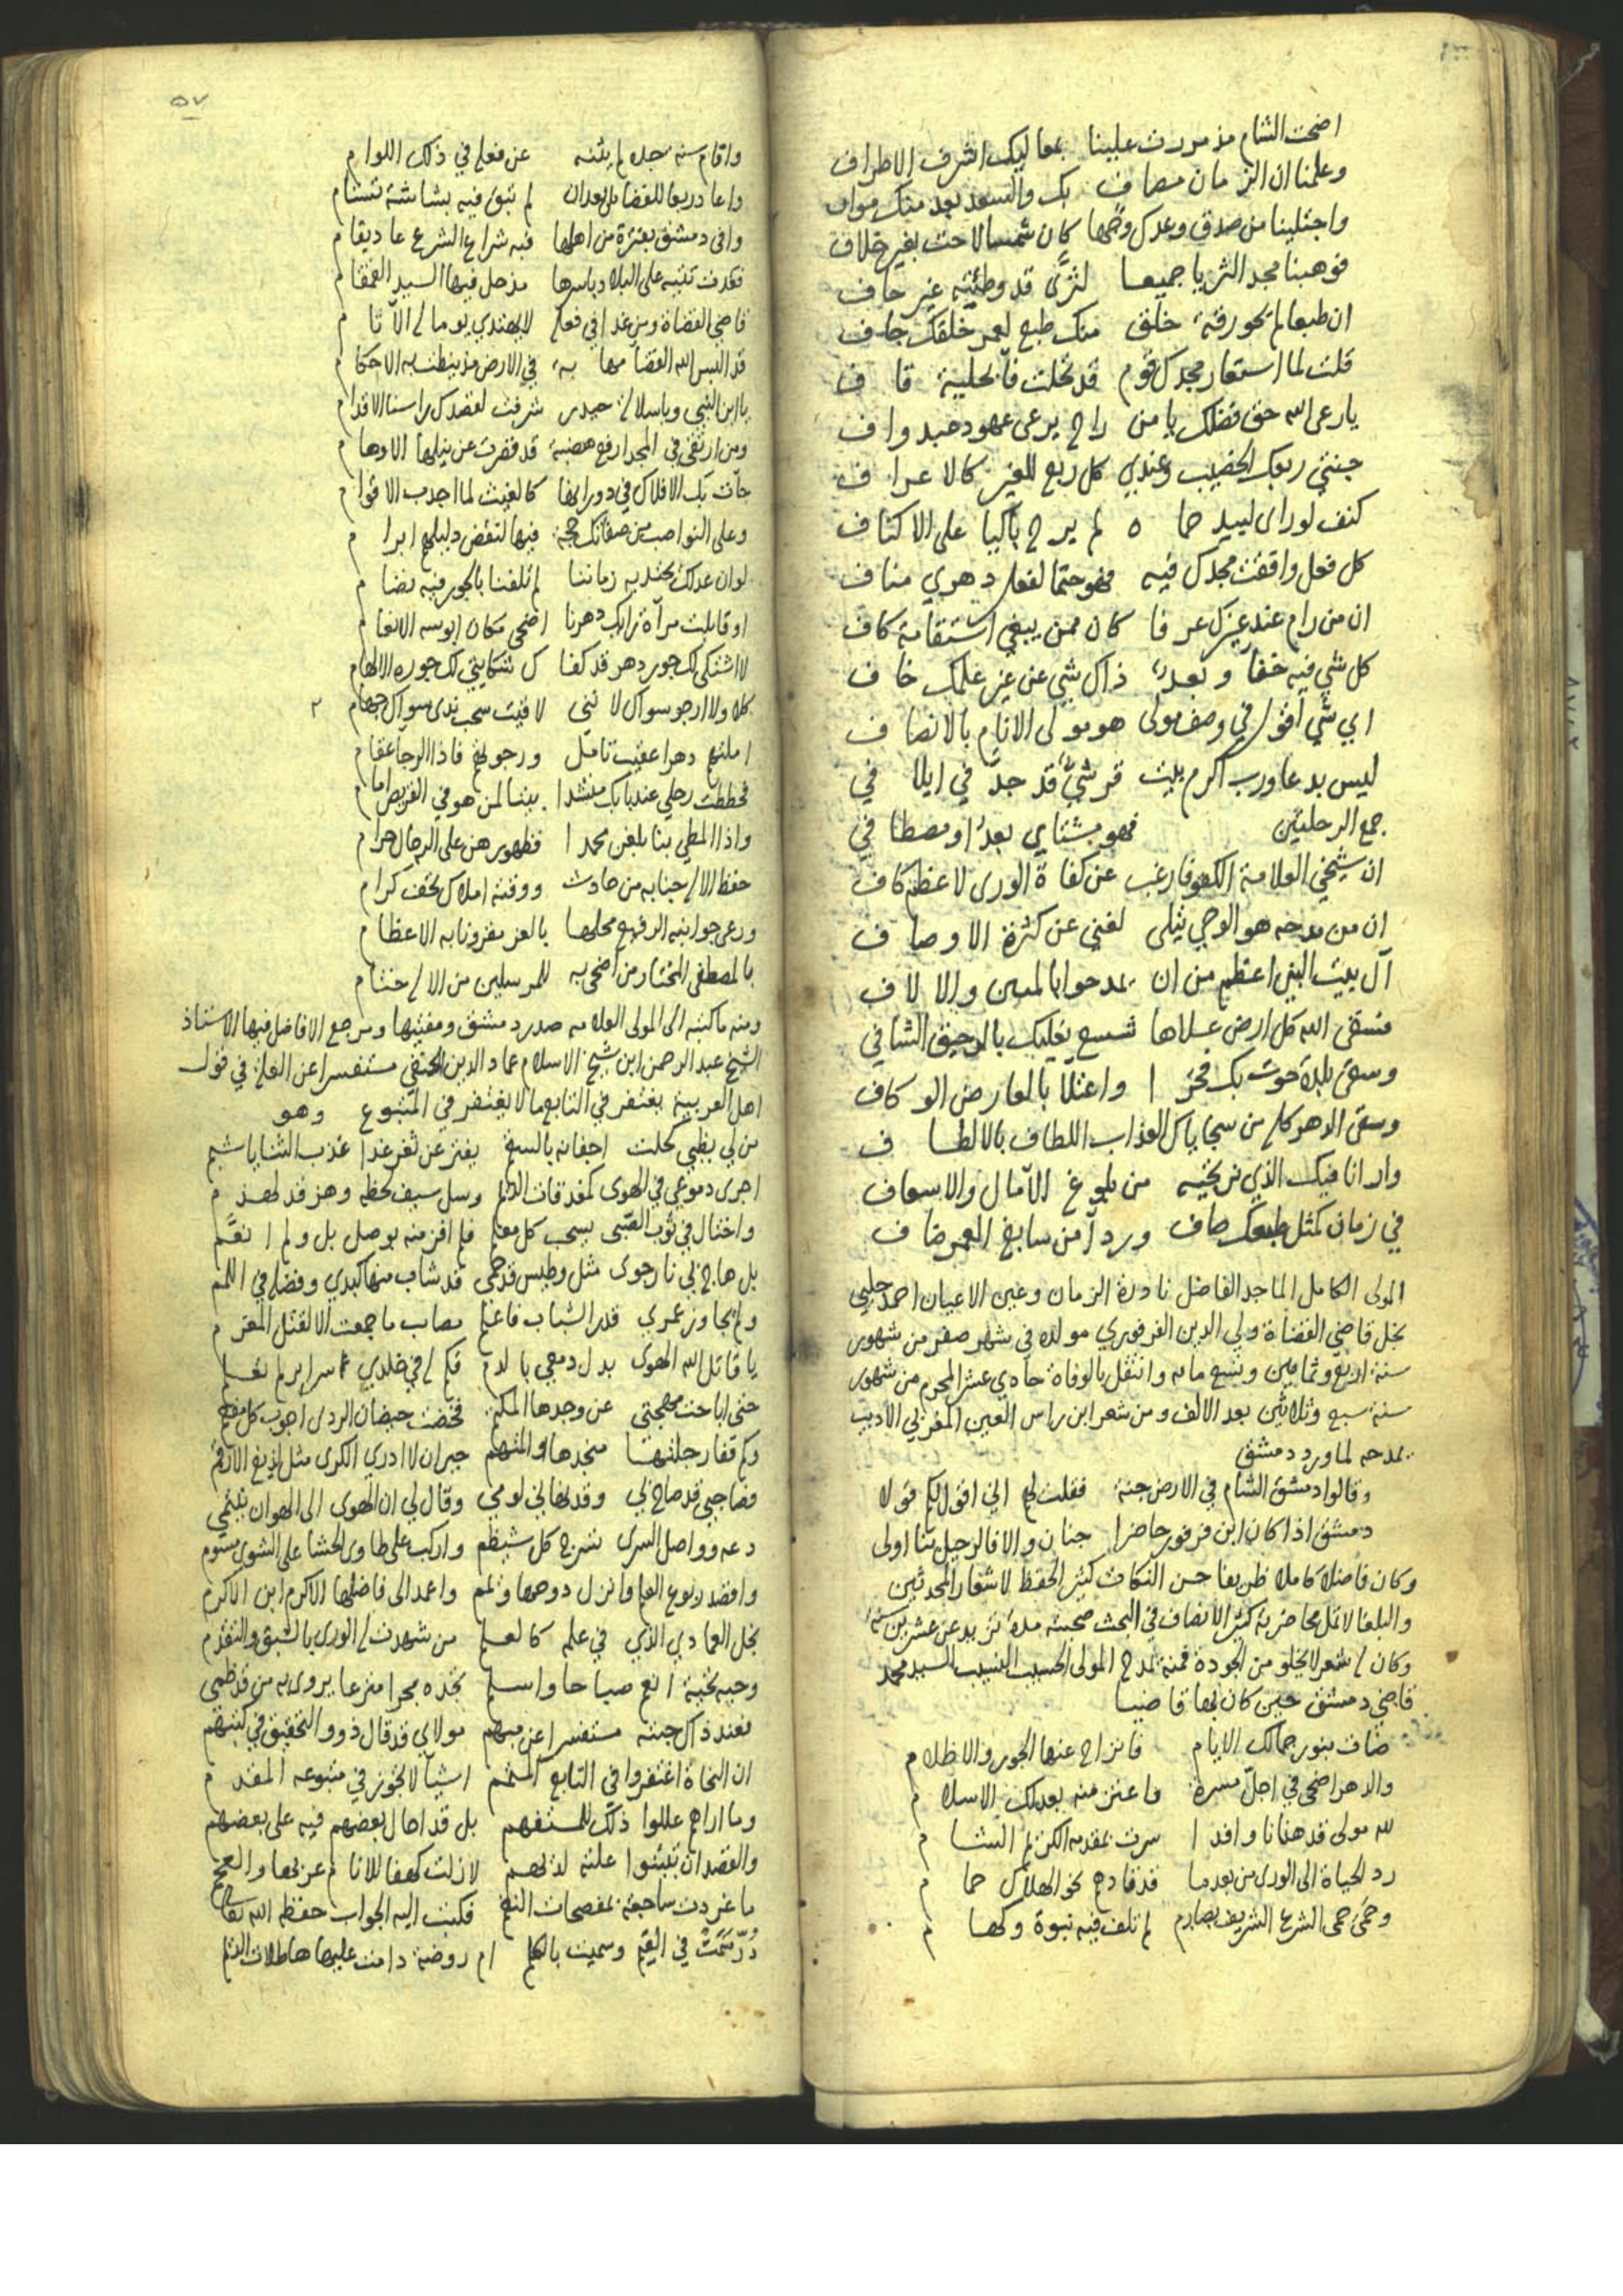 اضحت الشام مذ مررت علينا بمعاليك اشرف الاطراف
وعلمنا ان الزمان مصاف بك والسعد بعد منك مواف
واجتلينا من صدق وعدك وضحا كان شمسا لاحت بغير خلاف
فوهبنا مجد الثريا جميعا لثرى قد وطئته غير حاف
ان طبعا لم تحو رقة خلق منك طبع لعمر خلقك جاف
قلت لما استعار مجدك قوم قد تخلت فأين حلية قاف
يا رعى الله حق فضلك يا من راح يرعى عهود عبد واف
جنتي ربعك الخصيب وعندي كل ربع للغير كالاعراف
كنف لو راى لبيد حماه لم يرح باكيا على الاكناف
كل فعل وافقت مجدك فيه فهو حتما لفعل دهري مناف
ان من رام عند عزك عرفا كان ممن يبغي استقامة كاف
كل شي فيه خفاء وبعد ذاك شي عن عز علمك خاف
اي شي اقول في وصف مولى هو مولى الانام بالانصاف
ليس بدعا ورب اكرم بيت قرشي قد جد في ايلافي
جمع الرحلتين فهو بشتاي بعد او مصطافي
ان شيخي العلامة الكفو فارغب عن كفاة الورى لاعظم كاف
ان من مدحه هو الوحي يتلى لغني عن كثرة الاوصاف
آل بيت النبي اعظم من ان يمدحوا بالمين والالاف
فسقى الله كل ارض علاها شسع نعليك بالرحيق الشافي
وسقى بلدة حوت بك فخرا واعتلا بالعارض الوكاف
وسقى الدهر كله من سجاياك العذاب اللطاف بالالطاف
وارانا فيك الذي نرتجيه من بلوغ الآمال والاسعاف
في زمان كمثل طبعك صاف ورداً من سابغ العمر ضاف
المولى الكامل الماجد الفاضل نادرة الزمان وعين الاعيان احمد جلبي
نجل قاضي القضاة ولي الدين الفرفوري مولده في شهر صفر من شهور
سنة اربع وثمانين وتسع مائه وانتقل بالوفاة حادي عشر المحرم من شهور
سنة سبع وثلاثين بعد الالف ومن شعر ابن راس العين المغربي الاديب
يمدحه لما ورد دمشق
وقالوا دمشق الشام في الارض جنة فقلت لهم اني اقول لكم قولا
دمشق اذا كان ابن فرفور حاضرا جنان والا فالرحيل بنا اولى
وكان فاضلا كاملا ظريفا حسن النكات كثير الحفظ لاشعار المحدثين
والبلغا لا تمل محاضرته كثير الانصاف في البحث صحبته مدة تزيد عن عشرين سنة
وكان له شعر لا يخلو من الجودة فمنه يمدح المولى الحسيب النسيب السيد محمد
قاضي دمشق حين كان بها قاضيا
ضاءت بنور جمالك الايام فانزاح عنها الجور والاظلام
والدهر اضحى في اجل مسرة واعتز منه بعدلك الاسلام
لله مولى قد هنانا وافدا سرت بمقدمه الكريم الشام
رد الحياة الى الورى من بعدما قد قادهم نحو الهلاك حمام
وحمى حمى الشرع الشريف بصارم لم تلف فيه نبوة وكهام
٥٧
واقام سنة جده لم يثنه عن فعله في ذلك اللوام
واعاد ربعا للفضائل بعد ان لم تبق فيه بشاشة تستام
وافى دمشق بعترة من اهلها فيه شراع الشرع عاد يقام
فغدت تتيه على البلاد باسرها مذ حل فيها السيد القمقام
قاضي القضاة ومن غدا في فعله لا يهتدي يوما له الآثام
قد البس الله القضا مهابة في الارض مذ نيطت به الاحكام
يا ابن النبي ويا سلالة حيدر شرفت لقصدك راسنا الاقدام
ومن ارتقى في المجد ارفع هضبة قد قصرت عن نيلها الاوهام
جاءت بك الافلاك في دورانها كالغيث لما اجدب الاقوام
وعلى النواصب من صفاتك حجة فيها لنقض دليلهم ابرام
لو ان عدلك يحتذيه زماننا لم تلفنا بالجور فيه نضام
او قابلت مرآة رايك دهرنا اضحى مكان ابوسه الانعام
لا اشتكي لك جور دهر قد كفاك شكايتي لك جوره الالهام
كلا ولا ارجو سواك لانني لاقيت سحب ندى سواك جهام
املتهم دهرا عقيب تامل ورجوتهم فاذا الرجآ عقام
فحططت رحلي عند بابك منشدا بيتا لمن هو في القريض امام
واذا المطي بنا بلغن محمدا فظهورهن على الرجال حرام
حفظ الاله جنابه من حادث ووقته املاك تحف كرام
ورعى جوانبه الرفيع محلها بالعز مقرونا به الاعظام
بالمصطفى المختار من اضحى به للمرسلين من الاله ختام
ومنه ما كتبه الى المولى العلامه صدر دمشق ومفتيها ومرجع الافاضل فيها الاستاذ
الشيخ عبد الرحمن ابن شيخ الاسلام عماد الدين الحنفي مستفسرا عن العلة في قول
اهل العربية يغتفر في التابع ما لا يغتفر في المتبوع وهو
من لي بظبي كحلت اجفانه بالسقم يفتر عن ثغر غدا عذب الثنايا شبم
اجرى دموعي في الهوى كمغدقات الديم وسل سيف لحظه وهز قد لهذم
واختال في ثوب الصبى يسحب كل معلم فلم افز منه بوصل بل ولم انعم
بل هاج بي نار جوى مثل وطيس قد حمى قد شاب منها كبدي وفضله في اللمم
ولم يجاوز عمري قدر الشباب فاعلم مصاب ما جمعت الا لقتل المغرم
يا قاتل الله الهوى بدل دمعي بالدم فكم له في خلدي سراير لم تعلم
حتى اباحت مهجتي عن وجدها المكتم فخضت حيضان الردى اجوب كل
وكم قفار جلتها منجدها والمتهم حيران لا ادري الكرى مثل لديغ الارقم
فصاحبي قد صاح لي وقد لهاني لومي وقال لي ان الهوى الى الهوان ينتمي
دعه وواصل السرى بسرج كل شيظم واركب على طاوي الحشا على الشوى مسوم
واقصد ربوع العلم وانزل دوحها ويمم واعمد الى فاضلها الاكرم ابن الاكرم
نجل العمادي الذي في علمه كالعلم من شهدت له الورى بالسبق والتقدم
وحيه تحية انعم صباحا واسلم تجده بحرا مترعا يروى به من قد ظمي
فعند ذاك جئته مستفسرا عن مبهم مولاي قد قال ذوو التحقيق في كتبهم
ان النحاة اغتفروا في التابع المتمم اشيآ لا تجوز في متبوعه المقدم
وما اراهم عللوا ذلك للمستفهم بل قد احال بعضهم فيه على بعضهم
والقصد ان تبينوا علته لديهم لا زلت كهفا للانام عربها والعجم
ما غردت ساجعة بمفصحات النغم فكتب اليه الجواب حفظه الله تعالى
درر سمت في القيم وسميت بالكلم ام روضة دامت عليها هاطلات الديم